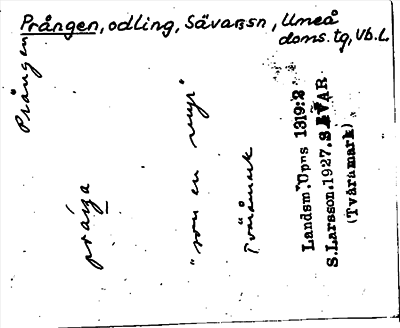 Prången, odling, Sävar sn, Umeå
doms. tg, Vb. L.
Prången
prå
"som en
Tväråmark
Landsm. Upps 1319:2
S. Larsson. 1927. SÄVAR
(Tväråmark)